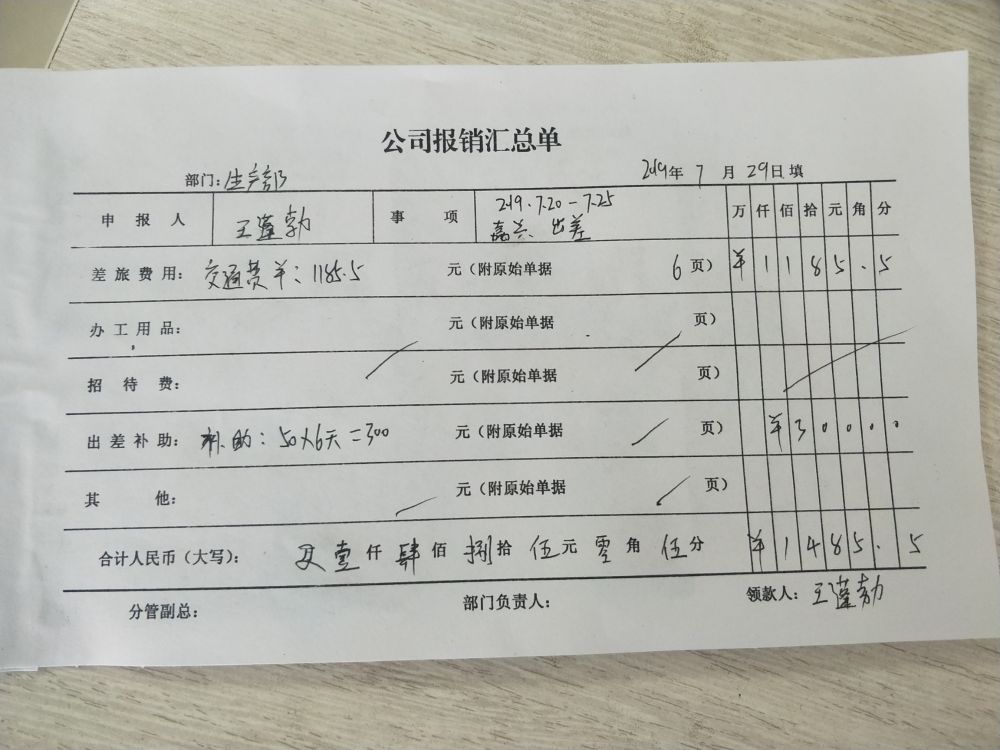 公司报销汇总单
部门：生产部 2019年 7 月 29日 填
申 报 人 王蓬勃 事 项 2019.7.20-7.25 嘉兴 出差 万 仟 佰 拾 元 角 分
差 旅 费 用： 交通费￥：1185.5 元（附原始单据 6 页） ￥ 1 1 8 5 . 5
办 工 用 品： 元（附原始单据 页）
招 待 费： 元（附原始单据 页）
出 差 补 助： 补助：50×6天=300 元（附原始单据 页） ￥ 3 0 0 0 0
其 他： 元（附原始单据 页）
合计人民币（大写）： 壹 仟 肆 佰 捌 拾 伍 元 零 角 伍 分 ￥ 1 4 8 5 . 5
分管副总： 部门负责人： 领款人：王蓬勃